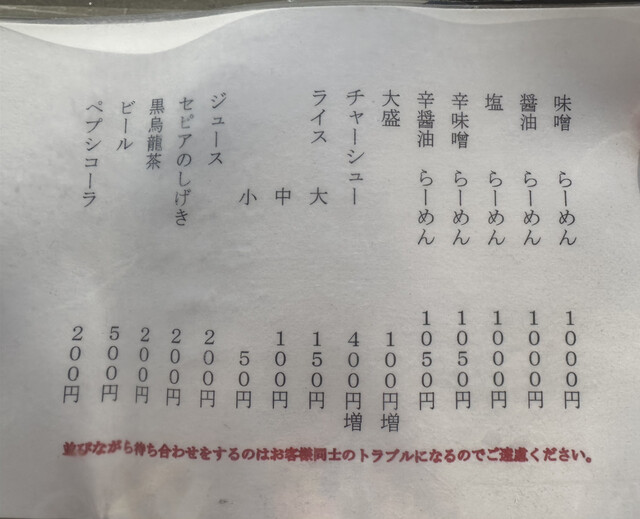 味噌 らーめん 1000円
醤油 らーめん 1000円
塩 らーめん 1000円
辛味噌 らーめん 1050円
辛醤油 らーめん 1050円
大盛 100円増
チャーシュー 400円増
ライス 大 150円
中 100円
小 50円
ジュース 200円
セピアのしげき 200円
黒烏龍茶 200円
ビール 500円
ペプシコーラ 200円
並びながら待ち合わせをするのはお客様同士のトラブルになるのでご遠慮ください。